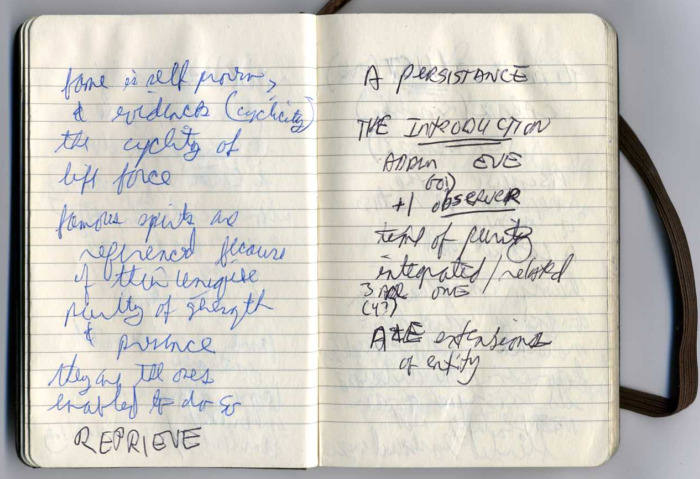 fame is self proving,
& evidences (cyclicity)
the cyclity of
life force
famous spirits are
referenced because
of their unique
purity of strength
& presence
they are the ones
enabled to do so
REPRIEVE
A PERSISTANCE
THE INTRODUCTION
ADAM EVE
+1 OBSERVER
of purity
integrated/related
3 ARE ONE
(4?)
A&E extensions
of entity